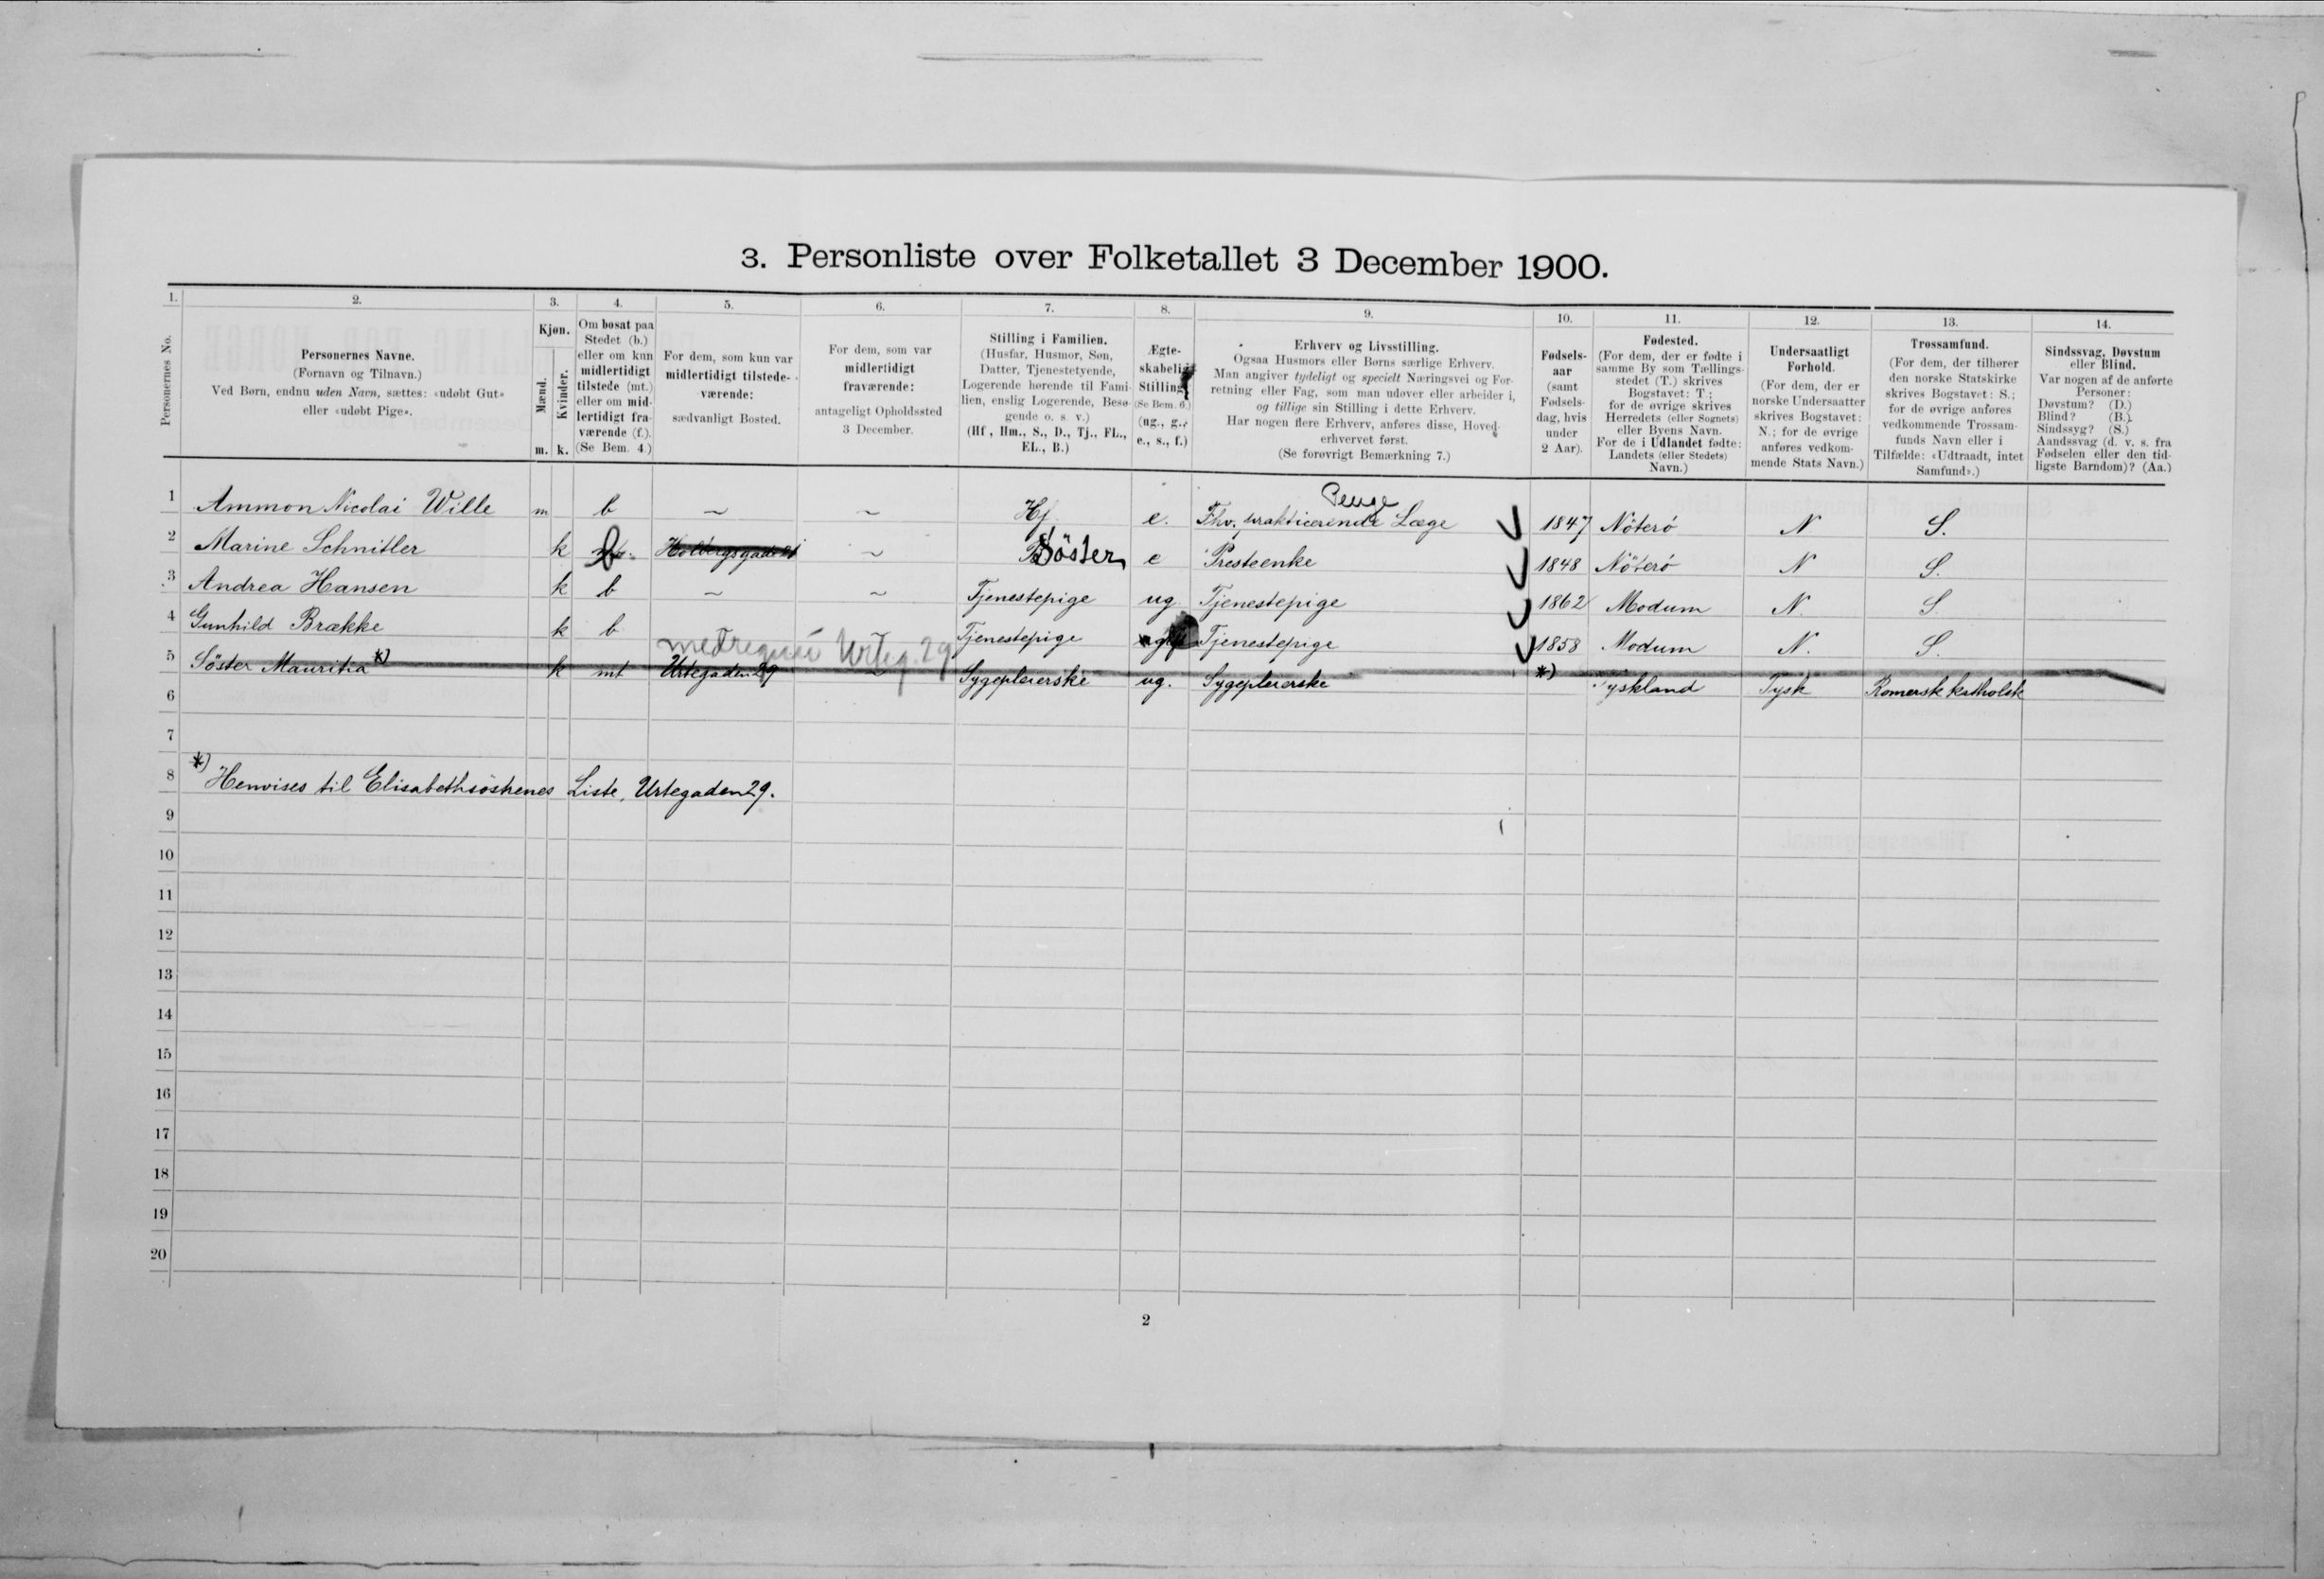 3. Personliste over Folketallet 3 December 1900.
1. 2. 3. 4. 5. 6. 7. 8. 9. 10. 11. 12. 13. 14.
Personernes No.
Personernes Navne.
(Fornavn og Tilnavn.)
Ved Børn, endnu uden Navn, sættes: «udøbt Gut»
eller «udøbt Pige».
Kjøn.
Mænd.
Kvinder.
m. k.
Om bosat paa
Stedet (b.)
eller om kun
midlertidigt
tilstede (mt.)
eller om mid-
lertidigt fra-
værende (f.).
(Se Bem. 4.)
For dem, som kun var
midlertidigt tilstede-
værende:
sædvanligt Bosted.
For dem, som var
midlertidigt
fraværende:
antageligt Opholdssted
3 December.
Stilling i Familien.
(Husfar, Husmor, Søn,
Datter, Tjenestetyende,
Logerende hørende til Fami-
lien, enslig Logerende, Besø-
gende o. s. v.)
(Hf, Hm., S., D., Tj., FL.,
EL., B.)
Ægte-
skabelig
Stilling
(Se Bem. 6.)
(ug., g.,
e., s., f.)
Erhverv og Livsstilling.
Ogsaa Husmors eller Børns særlige Erhverv.
Man angiver tydeligt og specielt Næringsvei og For-
retning eller Fag, som man udøver eller arbeider i,
og tillige sin Stilling i dette Erhverv.
Har nogen flere Erhverv, anføres disse, Hoved-
erhvervet først.
(Se forøvrigt Bemærkning 7.)
Fødsels-
aar
(samt
Fødsels-
dag, hvis
under
2 Aar).
Fødested.
(For dem, der er fødte i
samme By som Tællings-
stedet (T.) skrives
Bogstavet: T.;
for de øvrige skrives
Herredets (eller Sognets)
eller Byens Navn.
For de i Udlandet fødte:
Landets (eller Stedets)
Navn.)
Undersaatligt
Forhold.
(For dem, der er
norske Undersaatter
skrives Bogstavet:
N.; for de øvrige
anføres vedkom-
mende Stats Navn.)
Trossamfund.
(For dem, der tilhører
den norske Statskirke
skrives Bogstavet: S.;
for de øvrige anføres
vedkommende Trossam-
funds Navn eller i
Tilfælde: «Udtraadt, intet
Samfund».)
Sindssvag, Døvstum
eller Blind.
Var nogen af de anførte
Personer:
Døvstum? (D.)
Blind? (B.)
Sindssyg? (S.)
Aandssvag (d. v. s. fra
Fødselen eller den tid-
ligste Barndom)? (Aa.)
Penge
1 Ammon Nicolai Wille m b ~ ~ Hf. e. Fhv. prakticerende Læge 1847 Nöterö N S.
2 Marine Schnitler k b Holbergsgade ~ Söster e Presteenke 1848 Nöterö N S.
3 Andrea Hansen k b ~ ~ Tjenestepige ug Tjenestepige 1862 Modum N. S
4 Gunhild Brække k b Tjenestepige Tjenestepige 1858 Modum N. S.
medregnet Urteg. 29
5 Söster Mauritia *) k mt Urtegaden 29 ~ Sygepleierske ug. Sygepleierske *) Tyskland Tysk Romersk katholsk
6
7
*)
8 Henvises til Elisabethsöstrenes Liste, Urtegaden 29.
9
10
11
12
13
14
15
16
17
18
19
20
2